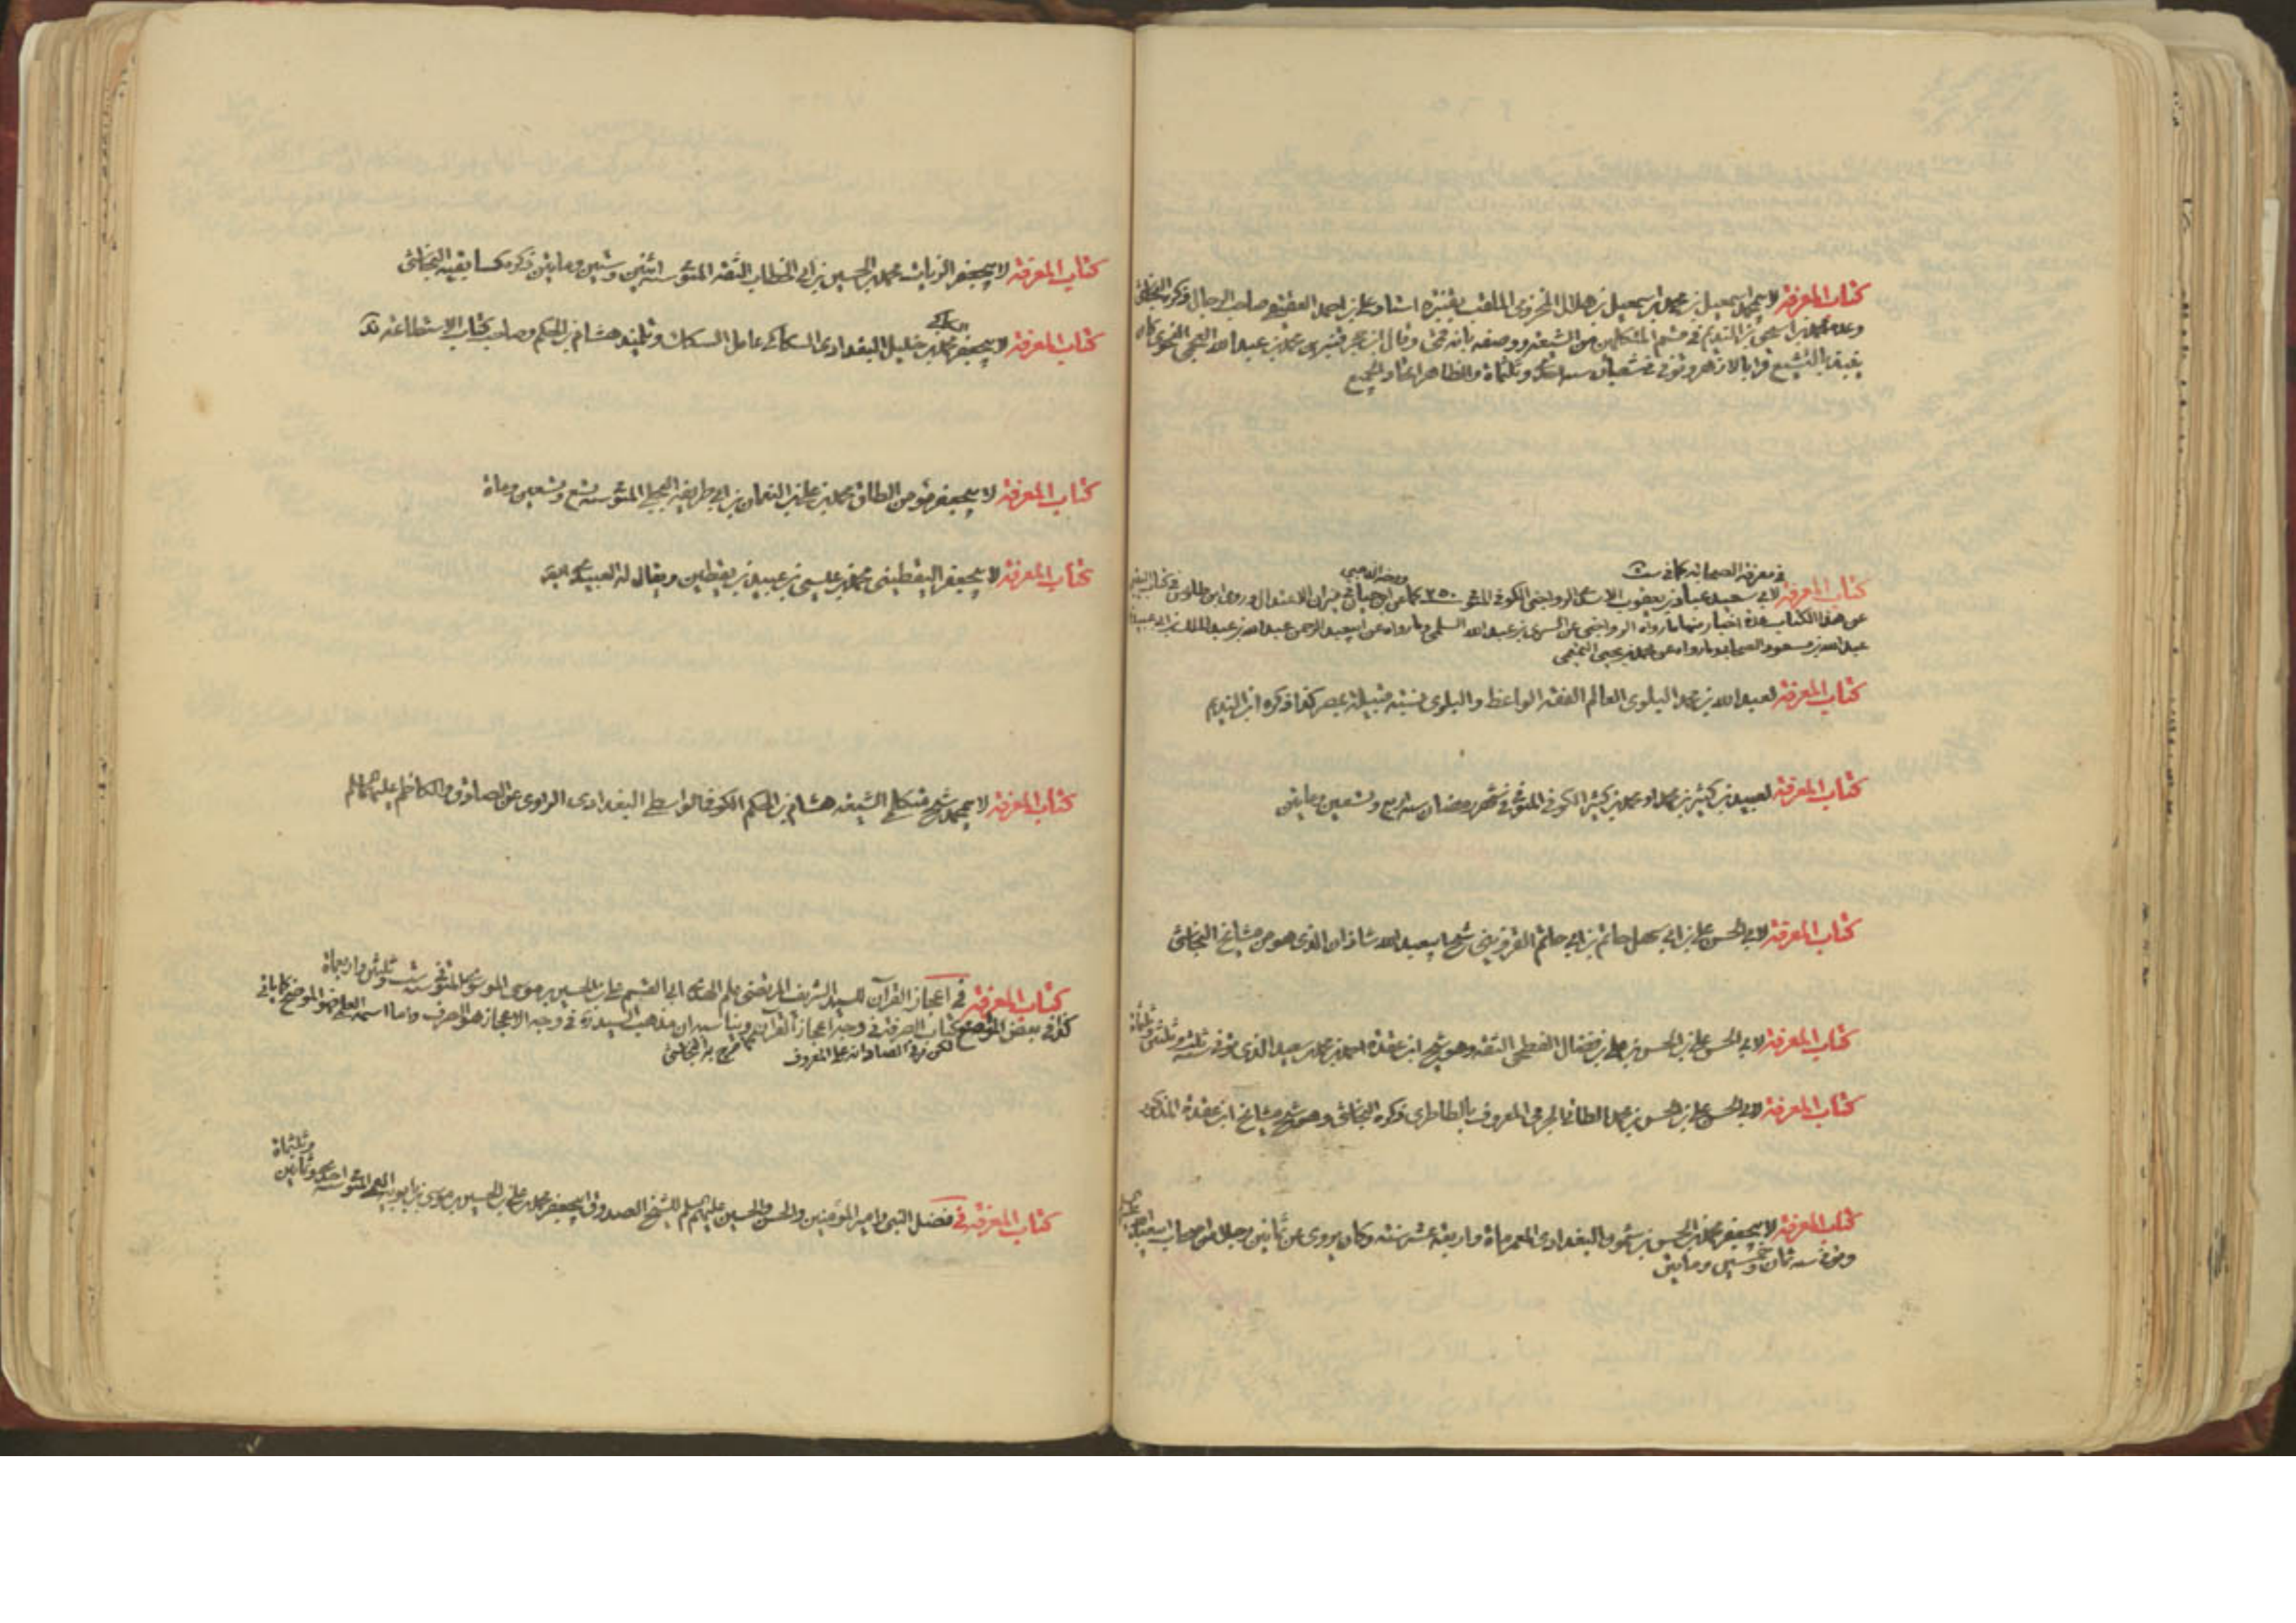 كتاب المعرفة لابي محمد اسمعيل بن محمد بن اسمعيل بن هلال المخزومي الملقب بقنبرة استاد علي بن احمد العقيقي صاحب الرجال ذكره النجاشي
وعده محمد بن اسحق بن النديم في قسم المتكلمين من الشيعة ووصفه بانه قمي وقال ابن حجر قنبري محمد بن عبيد الله القمي النحوي كان
بالتشيع وتوفي في شعبان سنة وثلثماة والظاهر اتحاد الجميع
في معرفة الصحابة كما في ست
ورخه الذهبي
كتاب المعرفة لابي سعيد عباد بن يعقوب الاسدي الرواجني الكوفي المتوفى ٢٥٠ كما عن ابن حبان في ميزان الاعتدال وروى ابن طاوس في كتاب اليقين
عن هذا الكتاب عدة اخبار منها ما رواه الرواجني عن السري بن عبد الله السلمي وما رواه عن ابي عبد الرحمن عبد الله بن عبد الملك بن ابي عبيدة
عبد الله بن مسعود الصحابي وما رواه عن محمد بن يحيى التميمي
كتاب المعرفة لعبد الله بن محمد البلوي العالم الفقيه الواعظ والبلوي نسبته قبيلة بمصر كذا ذكره ابن النديم
كتاب المعرفة لعبيد بن كثير بن محمد او محمد بن كثير الكوفي المتوفى في شهر رمضان سنة اربع وتسعين وماتين
كتاب المعرفة لابي الحسن علي بن ابي سهل حاتم بن ابي حاتم القزويني شيخ ابي عبد الله شاذان الذي هو من مشايخ النجاشي
كتاب المعرفة لابي الحسن علي بن الحسن بن علي بن فضال الفطحي الثقة وهو شيخ ابن عقدة احمد بن محمد بن سعيد الذي توفي سنة ثلث وثلثين وثلثماة
كتاب المعرفة لابي الحسن علي بن الحسن بن محمد الطائي الجرمي المعروف بالطاطري ذكره النجاشي وهو شيخ مشايخ ابن عقدة المذكور
كتاب المعرفة لابي جعفر محمد بن الحسن بن شمون البغدادي المعمر ماة واربعة عشر سنة وكان يروي عن ثمانين رجلا من اصحاب ابي عبد الله
وتوفي سنة ثمان وخمسين وماتين
كتاب المعرفة لابي جعفر الزيات محمد بن الحسين بن ابي الخطاب الثقة المتوفى سنة اثنين وستين وماتين ذكره كسابقيه النجاشي
السكاك
كتاب المعرفة لابي جعفر محمد بن خليل البغدادي السكاكي عامل السكك وتلميذ هشام بن الحكم وصاحب كتاب الاستطاعة
كتاب المعرفة لابي جعفر مؤمن الطاق محمد بن علي بن النعمان بن ابي طريفة البجلي المتوفى سنة تسع وتسعين وماة
كتاب المعرفة لابي جعفر اليقطيني محمد بن عيسى بن عبيد بن يقطين ويقال له العبيدي
كتاب المعرفة لابي محمد شيخ متكلمي الشيعة هشام بن الحكم الكوفي الواسطي البغدادي الراوي عن الصادق والكاظم عليهما السلم
كتاب المعرفة في اعجاز القرآن للسيد الشريف المرتضى علم الهدى ابي القسم علي بن الحسين بن موسى الموسوي المتوفى سنة ست وثلثين واربعماة
كذا في بعض المواضع كتاب الصرفة في وجه اعجاز القرآن ويناسبه ان مذهب السيد ره في وجه الاعجاز هو الصرف واما اسمه
كما صرح به النجاشي
كتاب المعرفة في فضل النبي وامير المؤمنين والحسن والحسين عليهم السلم للشيخ الصدوق ابي جعفر محمد بن علي بن الحسين بن موسى بن بابويه القمي المتوفى سنة احدى وثمانين
وثلثماة